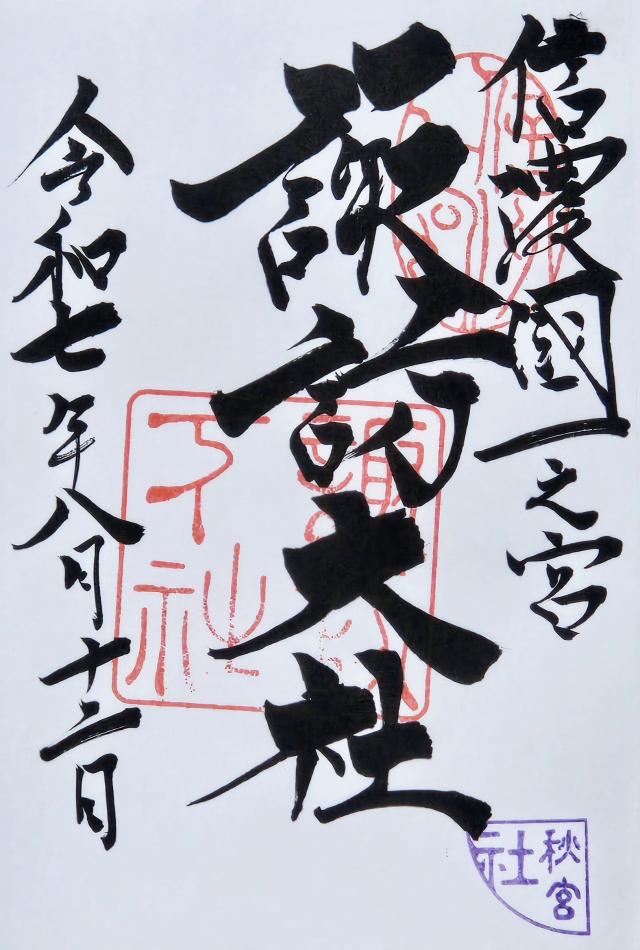 信濃國一之宮
諏訪大社
令和七年八月十二日
下社
秋宮
社